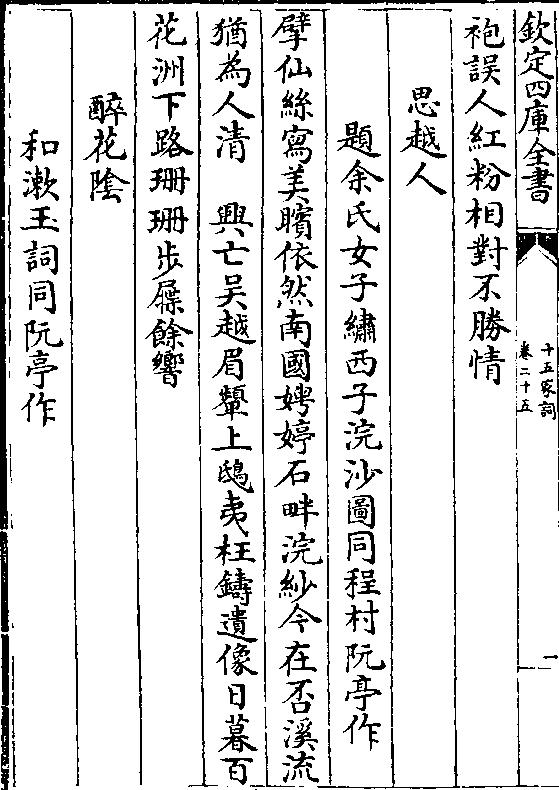 欽定四庫全書
十五家詞
卷二十五
一
袍誤人紅粉相對不勝情
思越人
題余氏女子繡西子浣沙圖同程村阮亭作
擘仙絲寫美矉依然南國娉婷石畔浣紗今在否溪流
猶為人清　興亡吳越眉顰上鴟夷枉鑄遺像日暮百
花洲下路珊珊步屧餘響
醉花陰
和漱玉詞同阮亭作